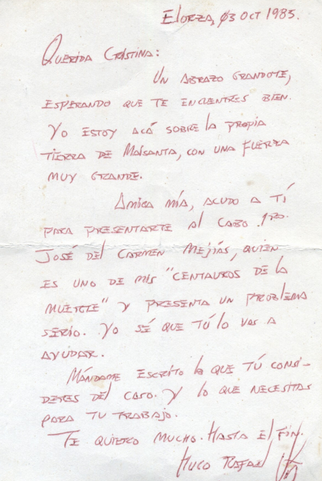 Elorza, 03 OCT 1985.
Querida Cristina:
Un abrazo grandote,
esperando que te encuentres bien.
Yo estoy acá sobre la propia
tierra de Maisanta, con una fuerza
muy grande.
Amiga mía, acudo a tí
para presentarte al Cabo 1ro.
José del Carmen Mejías, quien
es uno de mis "Centauros de la
Muerte" y presenta un problema
serio. Yo sé que tú lo vas a
ayúdar.
Mándame escrito lo que tú consi-
deres del caso. Y lo que necesitas
para tu trabajo.
Te quiero mucho. Hasta el fin.
Hugo Rafael